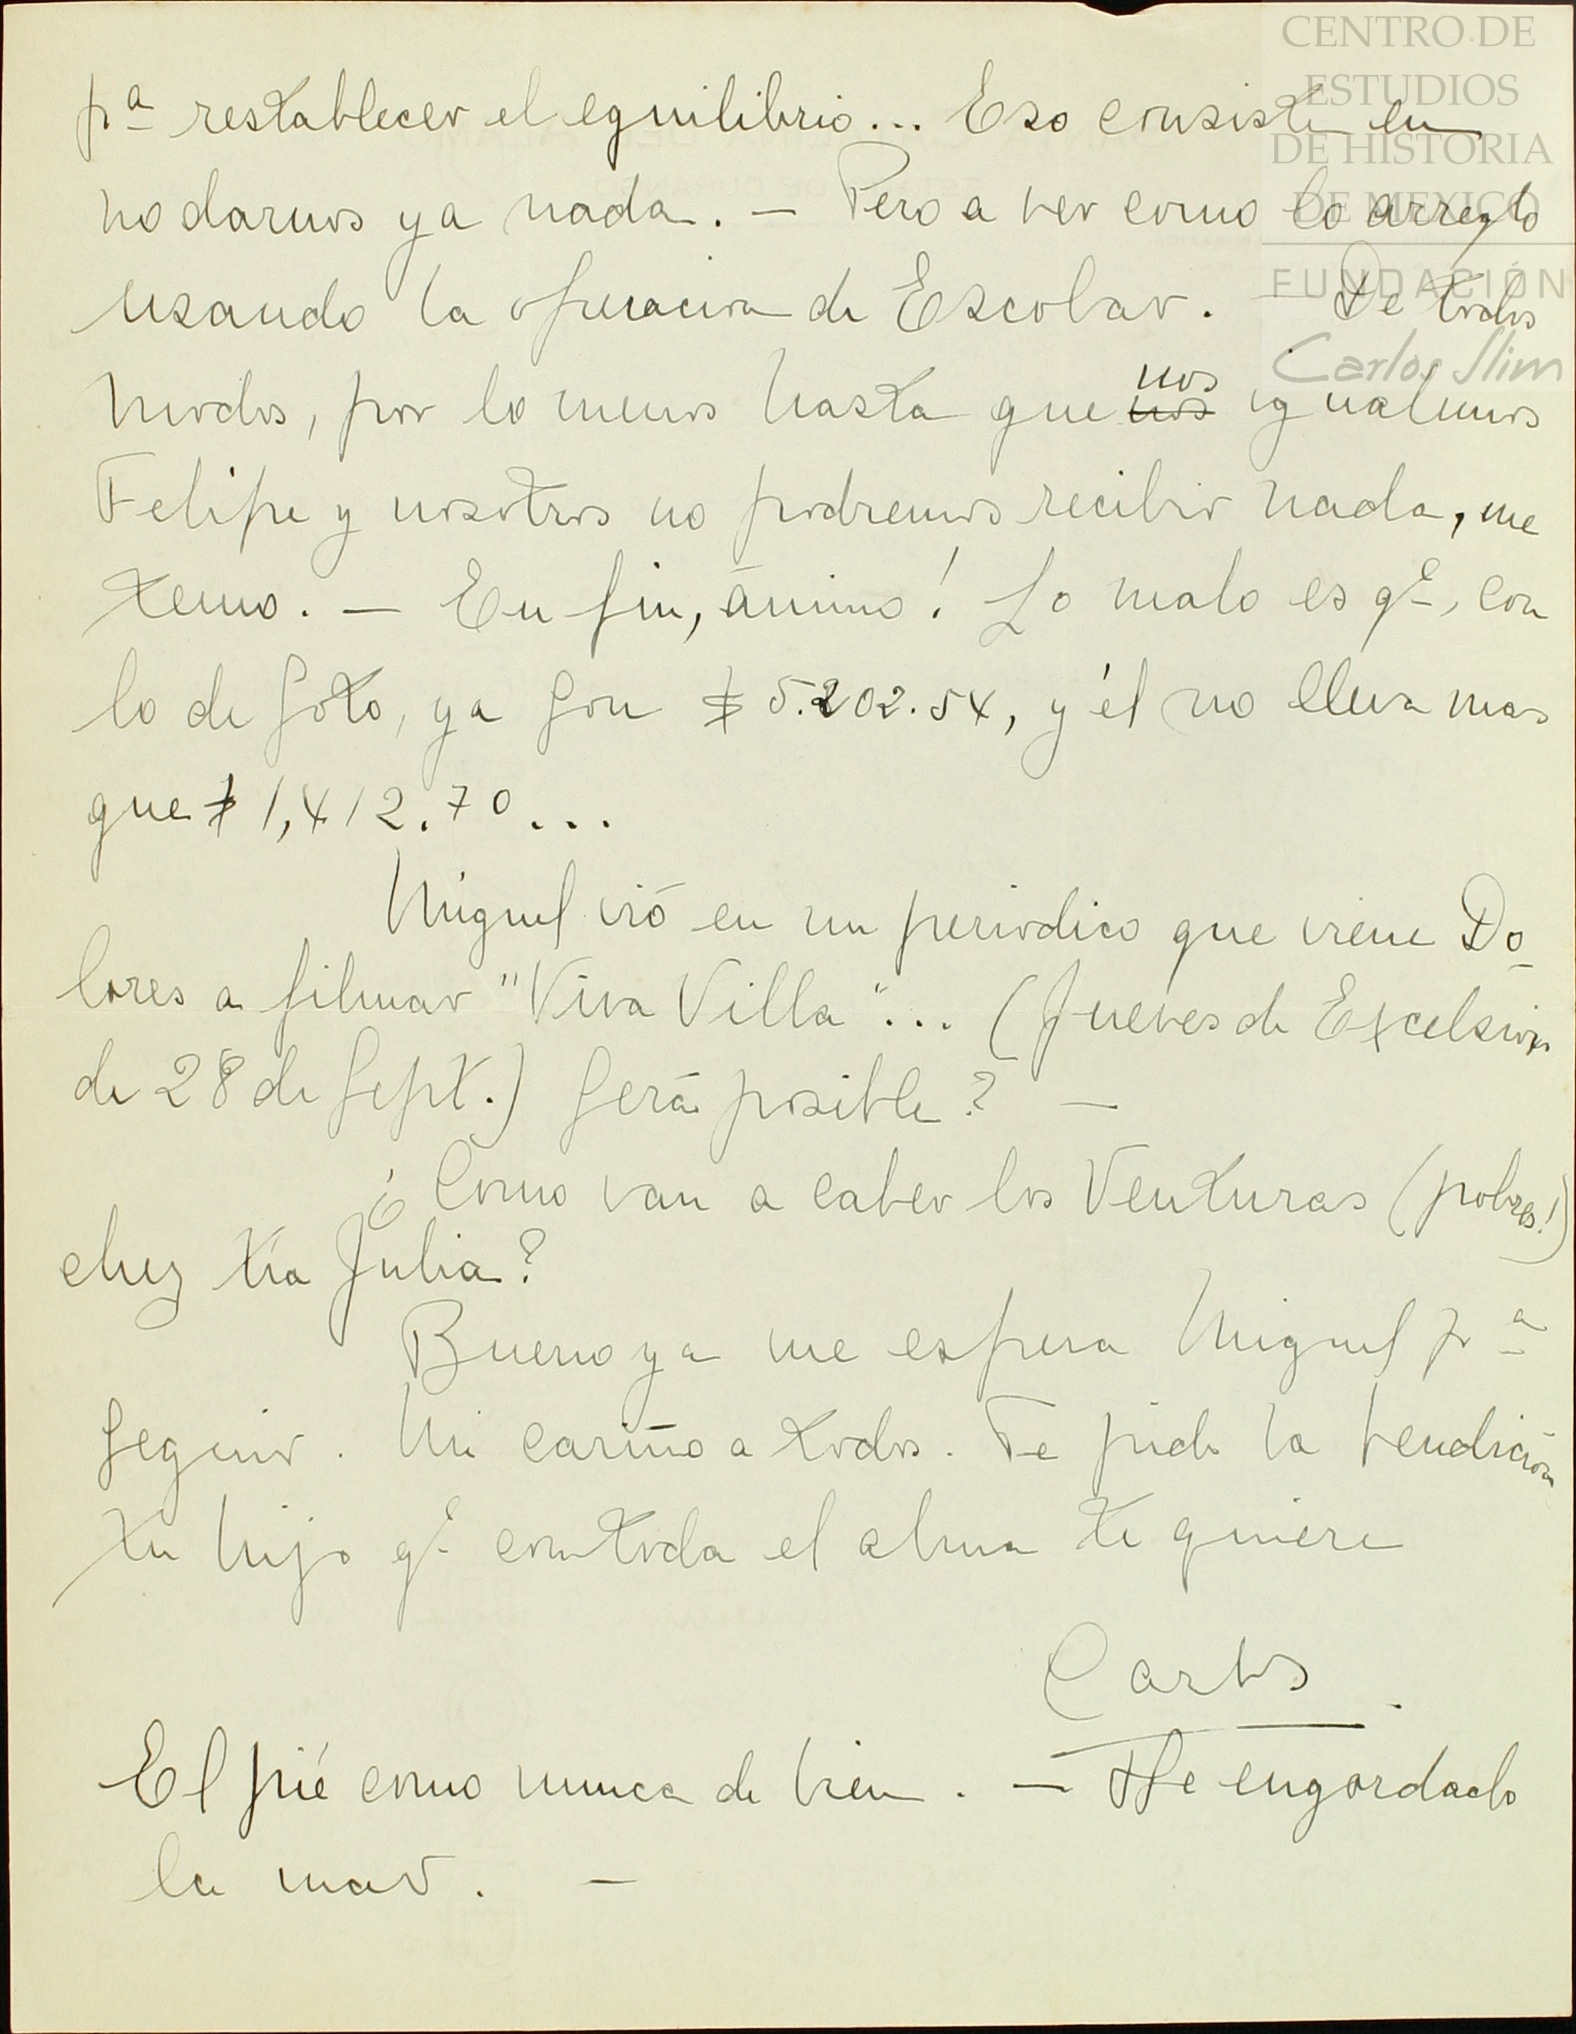 CENTRO DE
ESTUDIOS
DE HISTORIA
DE MEXICO
FUNDACIÓN
Carlos Slim
pª restablecer el equilibrio... Eso consiste en
no darnos ya nada. — Pero a ver como lo arreglo
usando la operacion de Escobar. — De todos
modos, por lo menos hasta que nos nos igualemos
Felipe y nosotros no podremos recibir nada, me
temo. — En fin, ánimo! Lo malo es qᵉ, con
lo de Soto, ya son $5.202.54, y él no lleva mas
que $1,412.70...
Miguel vió en un periodico que viene Do-
lores a filmar "Viva Villa"... (Jueves de Excelsior
de 28 de Sept.) Será posible? —
¿Como van a caber los Venturas (pobres!)
chez tía Julia?
Bueno ya me espera Miguel pª
seguir. Mi cariño a todos. Te pide la bendición
tu hijo qᵉ con toda el alma te quiere
Carlos
El pié como nunca de bien. — He engordado
la mar. —